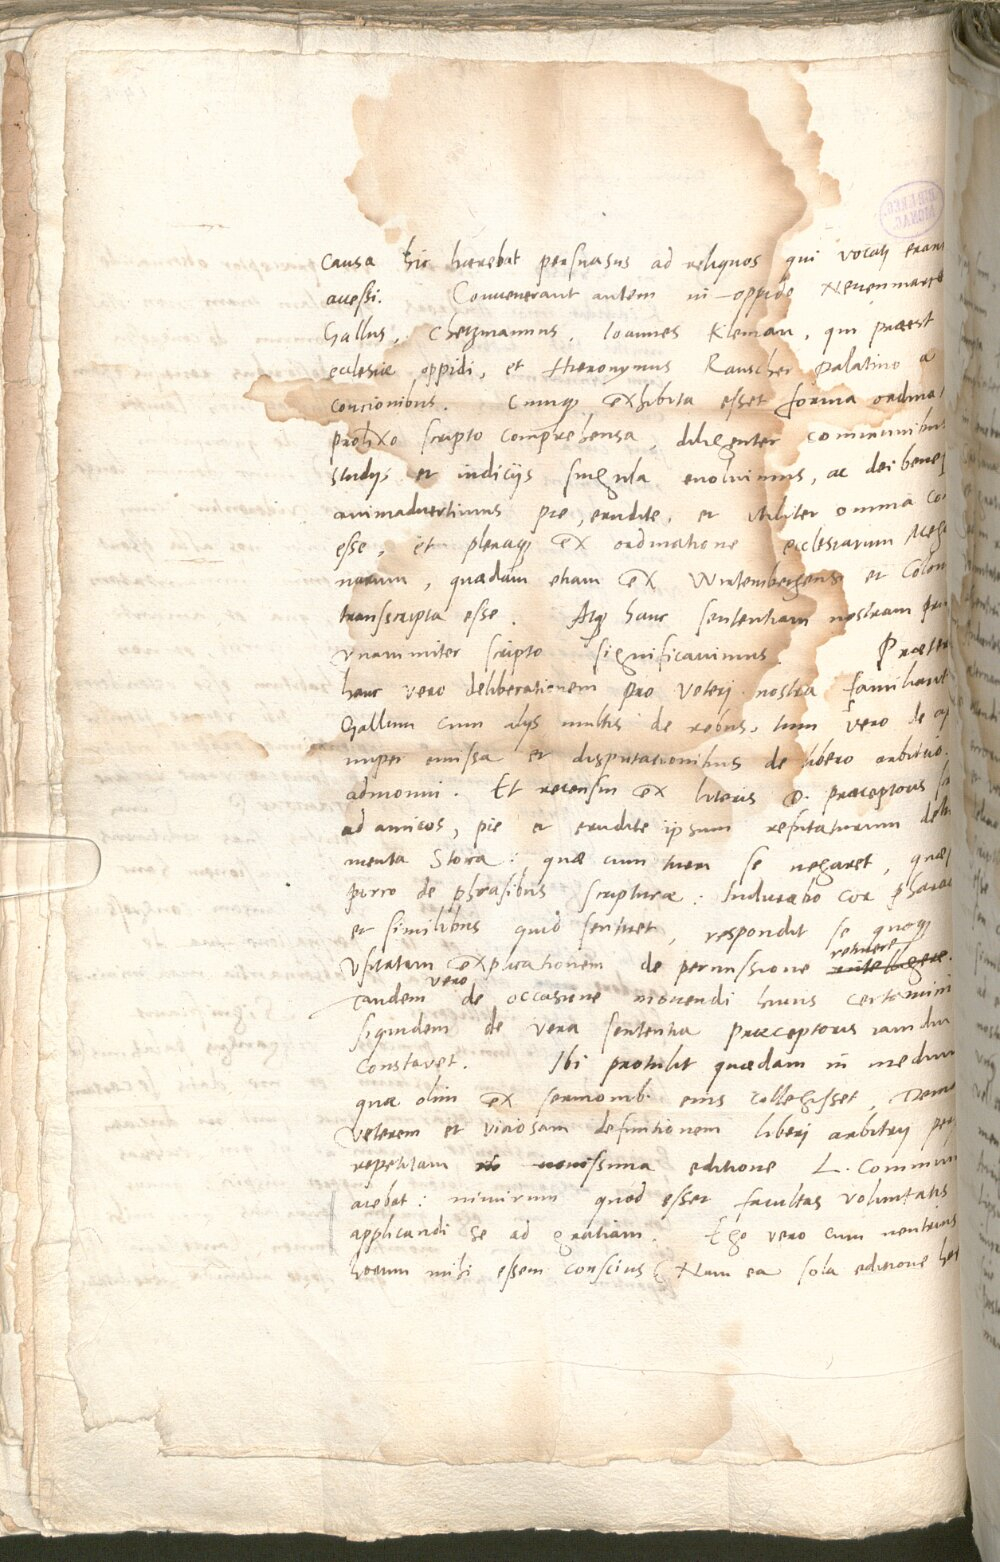 causa hic hærebat persuasus ad reliquos qui vocatj erant
accessi. Convenerant autem in oppido Neuenmarckt
Gallus, Chetzmannus, Ioannes Kleman, qui præest
ecclesiæ oppidi, et Hieronymus Rauscher Palatino a
concionibus. Cumq exhibita esset forma ordinat
prolixo scripto comprehensa, diligenter communibus
studijs et iudicijs singula euoluimus, ac dei benef
animaduertimus pie, erudite, et utiliter omnia co
esse, et pleraq ex ordinatione ecclesiarum Mega
narum, quædam etiam ex Wirtembergensi et Colon
transcripta esse. Atq hanc sententiam nostram Prin
vnanimiter scripto significauimus. Præter
hanc vero deliberationem pro veterj nostra familiarit
Gallum cum alijs multis de rebus, tum vero de
nuper emissa et disputationibus de libero arbitrio
admonui. Et recensui ex literis D. præceptoris
ad amicos, pie et erudite ipsum refutaturum deli
menta Stoica: quæ cum tueri se negaret, quæ
porro de phrasibus scripturæ: Indurabo cor phara
et similibus quid sentiret, respondit se quoq
vsitatam explicationem de permissione retinere
Tandem vero de occasione mouendi huius certamini
siquidem de vera sententia præceptoris iam diu
constaret. Ibi protulit quædam in medium
quæ olim ex sermonib. eius collegisset,
veterem et viciosam definitionem liberj arbitrij
repetitam nouissima editione L. Commun
aiebat: nimirum quod esset facultas voluntatis
applicandi se ad gratiam. Ego vero cum neutrius
horum mihi essem conscius (Nam ea sola editione